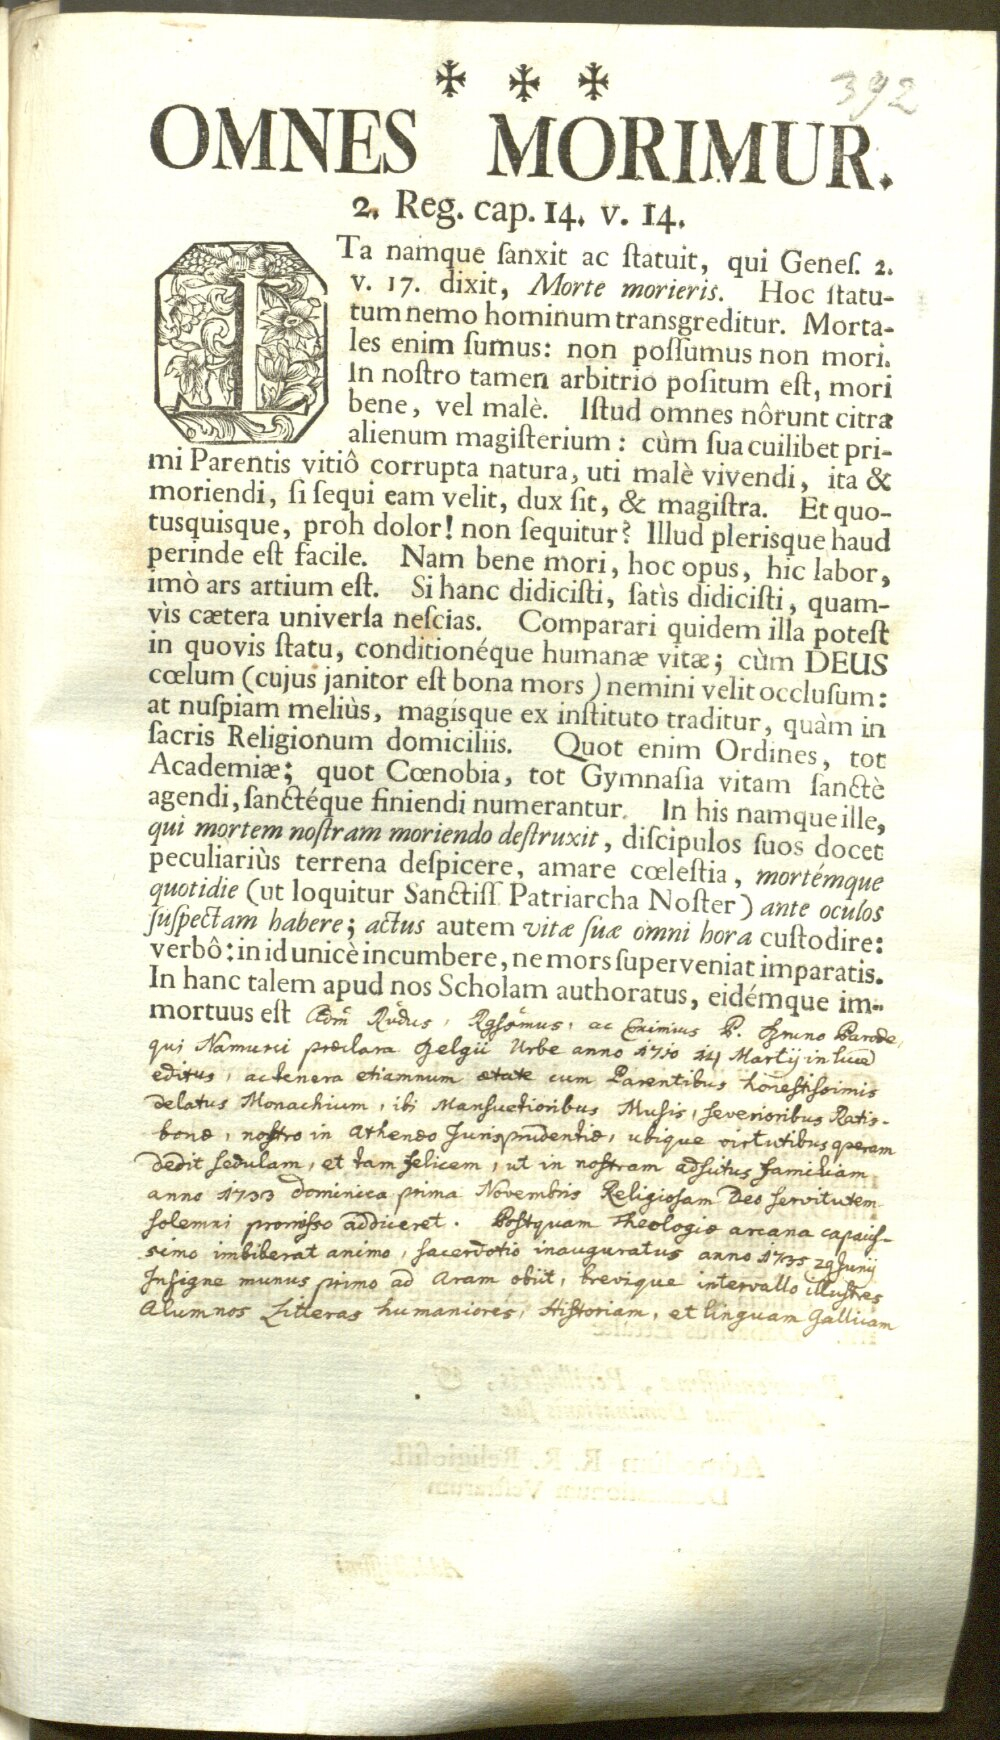 392
✠ ✠ ✠
OMNES MORIMUR.
2. Reg. cap. 14. v. 14.
ITa namque ſanxit ac ſtatuit, qui Geneſ. 2.
v. 17. dixit, Morte morieris. Hoc ſtatu-
tum nemo hominum transgreditur. Morta-
les enim ſumus: non poſſumus non mori.
In noſtro tamen arbitrio poſitum eſt, mori
bene, vel malè. Iſtud omnes nôrunt citra
alienum magiſterium: cùm ſua cuilibet pri-
mi Parentis vitiô corrupta natura, uti malè vivendi, ita &
moriendi, ſi ſequi eam velit, dux ſit, & magiſtra. Et quo-
tusquisque, proh dolor! non ſequitur? Illud plerisque haud
perinde eſt facile. Nam bene mori, hoc opus, hic labor,
imò ars artium eſt. Si hanc didiciſti, ſatìs didiciſti, quam-
vìs cætera univerſa neſcias. Comparari quidem illa poteſt
in quovis ſtatu, conditionéque humanæ vitæ; cùm DEUS
cœlum (cujus janitor eſt bona mors) nemini velit occluſum:
at nuſpiam meliùs, magisque ex inſtituto traditur, quàm in
ſacris Religionum domiciliis. Quot enim Ordines, tot
Academiæ; quot Cœnobia, tot Gymnaſia vitam ſanctè
agendi, ſanctéque finiendi numerantur. In his namque ille,
qui mortem noſtram moriendo deſtruxit, diſcipulos ſuos docet
peculiariùs terrena deſpicere, amare cœleſtia, mortémque
quotidie (ut loquitur Sanctiſſ Patriarcha Noſter) ante oculos
ſuſpectam habere; actus autem vitæ ſuæ omni hora cuſtodire:
verbô: in id unicè incumbere, ne mors ſuperveniat imparatis.
In hanc talem apud nos Scholam authoratus, eidémque im-
mortuus eſt Adm̃ Rñdus, Rgſsimus, ac Eximius P. Bruno Parode,
qui Namurci præclara Belgii Urbe anno 1710 14 Martij in lucē
editus, ac tenera etiamnum ætate cum Parentibus honestissimis
delatus Monachium, ibi Mansuetioribus Musis, severioribus Ratis-
bonæ, nostro in Athenæo Jurisprudentiæ, ubique virtutibus operam
dedit sedulam, et tam felicem, ut in nostram adscitus familiam
anno 1733 dominica prima Novembris Religiosam Deo servitutem
solemni promisso addiceret. Postquam Theologiæ arcana capacis-
simo imbiberat animo, sacerdotio inauguratus anno 1735 29 Junij
Insigne munus primo ad Aram obiit, brevique intervallo illustres
Alumnos Litteras humaniores, Historiam, et linguam Gallicam